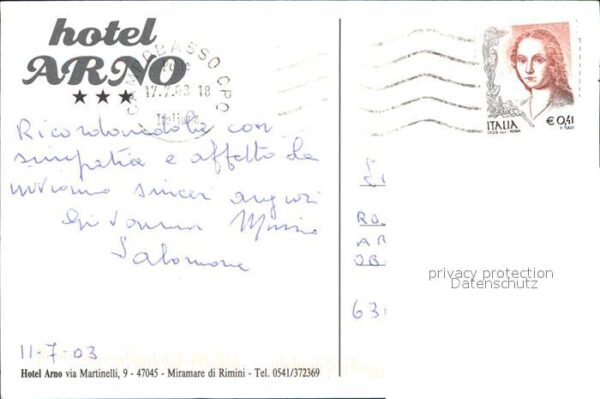 hotel
ARNO
★★★
CAMPOBASSO C.P.O
17.7.03 18
Italiane
ITALIA
€0,41
Ricordandola con
simpatia e affetto la
inviamo sinceri auguri
Giovanna
Salomone
RO
AR
OB
63
privacy protection
Datenschutz
11-7-03
Hotel Arno via Martinelli, 9 - 47045 - Miramare di Rimini - Tel. 0541/372369